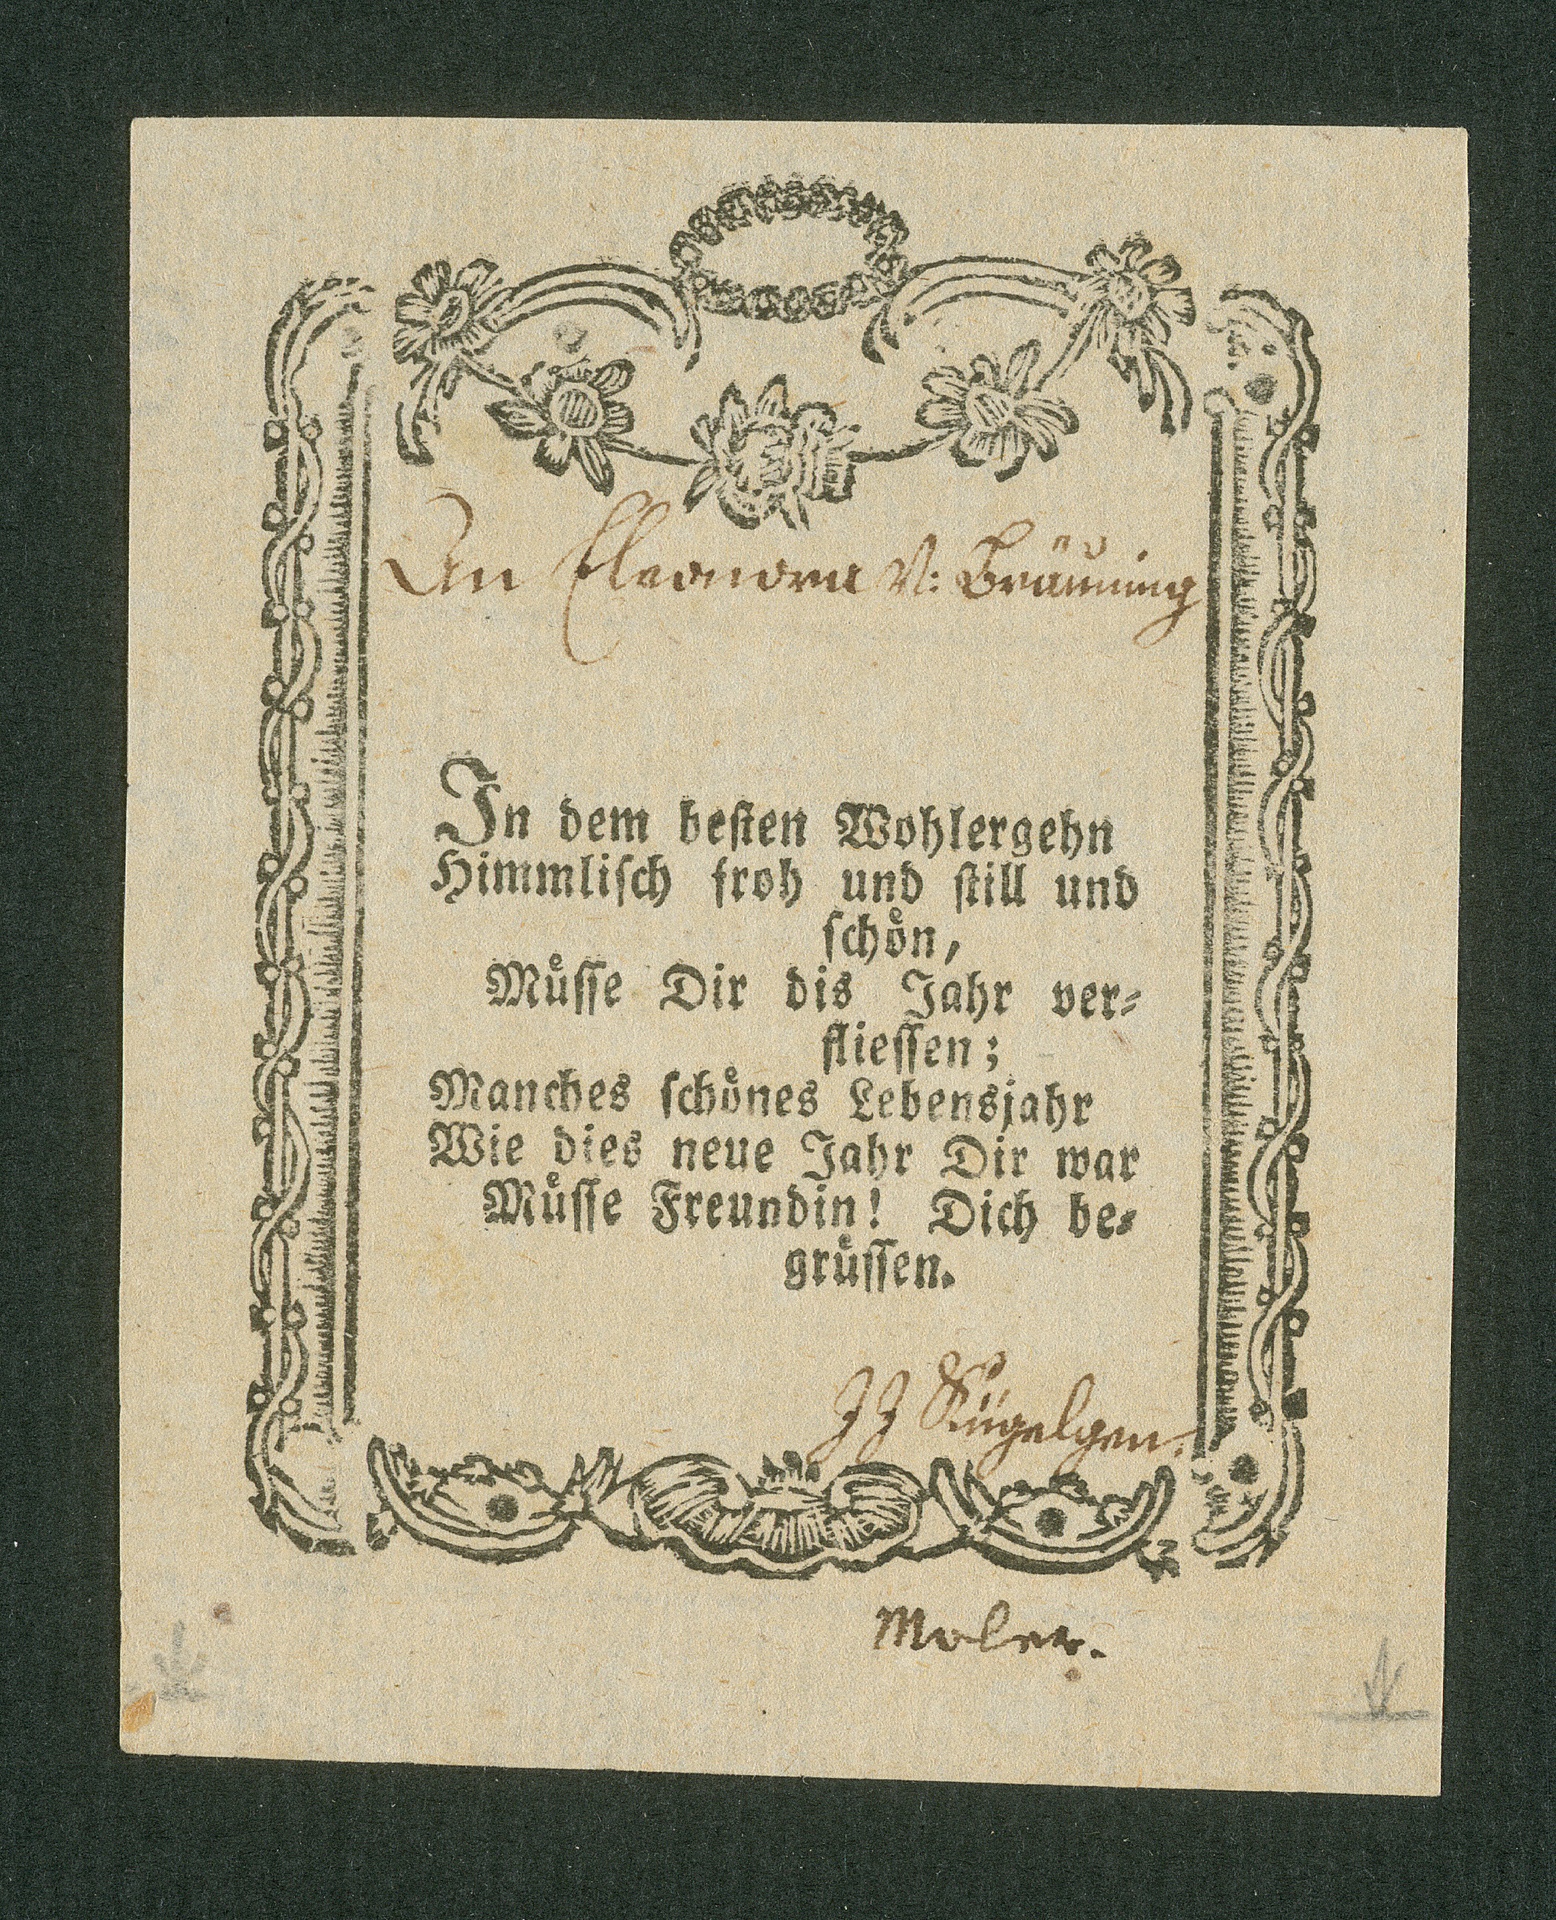 An Eleonora V: Bräuning
In dem besten Wohlergehn
Himmlisch froh und still und
schön,
Müsse Dir dis Jahr ver-
fliessen;
Manches schönes Lebensjahr
Wie dies neue Jahr Dir war
Müsse Freundin! Dich be-
grüssen.
JJ Kügelgen.
Moler.